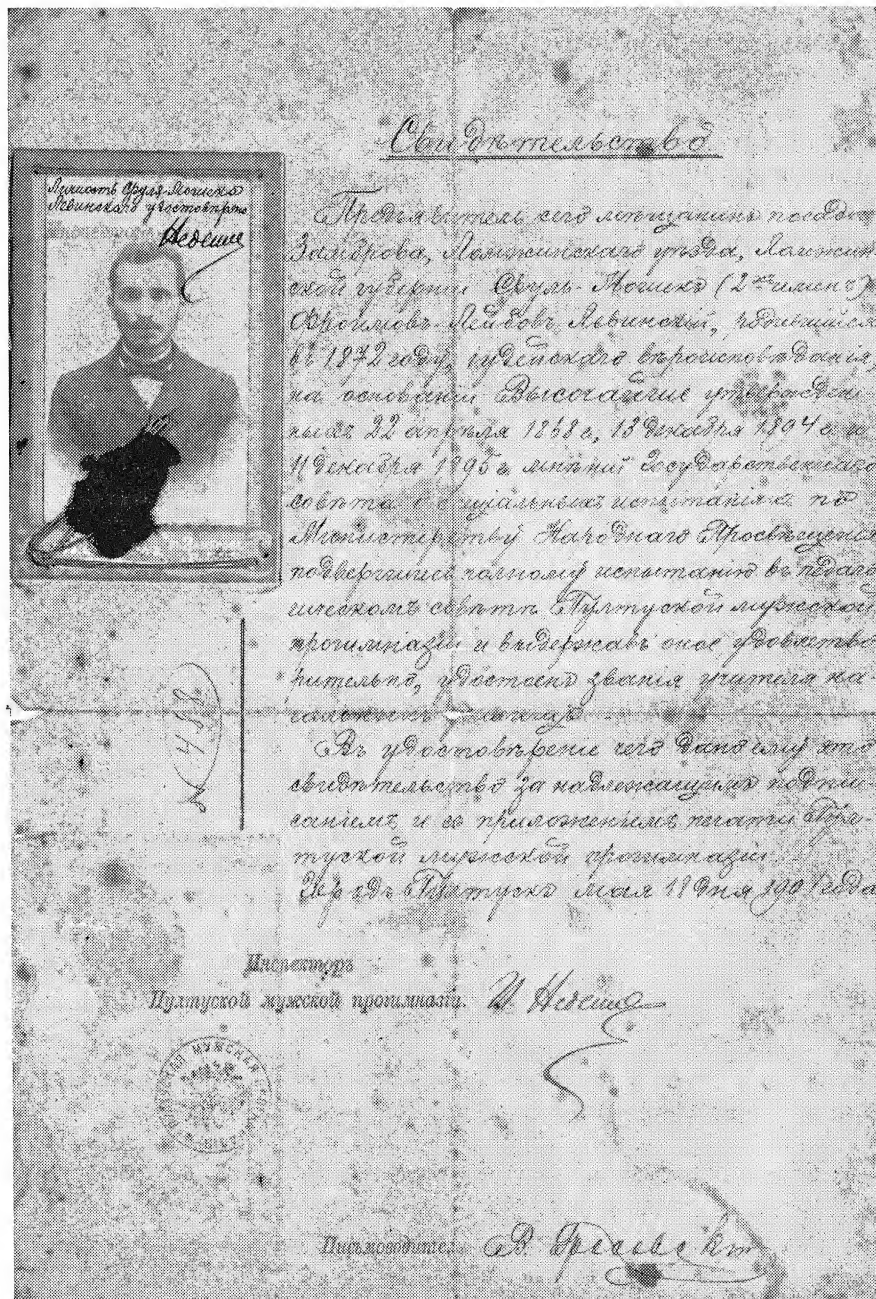 Свидѣтельство
Личность Сруля-Мошека
Левинскаго удостовѣряю
Недешев
Предъявитель сего мѣщанинъ посада
Замброва, Ломжинскаго уѣзда, Ломжин-
ской губернiи Сруль-Мошекъ (2хъ именъ)
Фроимовъ-Лейбовъ Левинскiй, родившiйся
въ 1872 году, iудейскаго вѣроисповѣданiя,
на основанiи Высочайше утвержден-
ныхъ 22 апрѣля 1868 г., 13 декабря 1894 г. и
11 декабря 1895 г. мнѣнiй Государственнаго
совѣта о спецiальныхъ испытанiяхъ по
Министерству Народнаго Просвѣщенiя
подвергшись полному испытанiю въ педаго
гическомъ совѣтѣ Пултуской мужской
прогимназiи и выдержавъ оное удовлетво
рительно, удостоенъ званiя учителя на-
чальныхъ училищъ.
Въ удостовѣренiе чего дано ему это
свидѣтельство за надлежащимъ подпи-
санiемъ и съ приложенiемъ печати Пул-
туской мужской прогимназiи.
Пултускъ мая 18 дня 1901 года
№ 498
Инспекторъ
Пултуской мужской прогимназiи.
ПУЛТУСКАЯ МУЖСКАЯ
Письмоводитель
В.